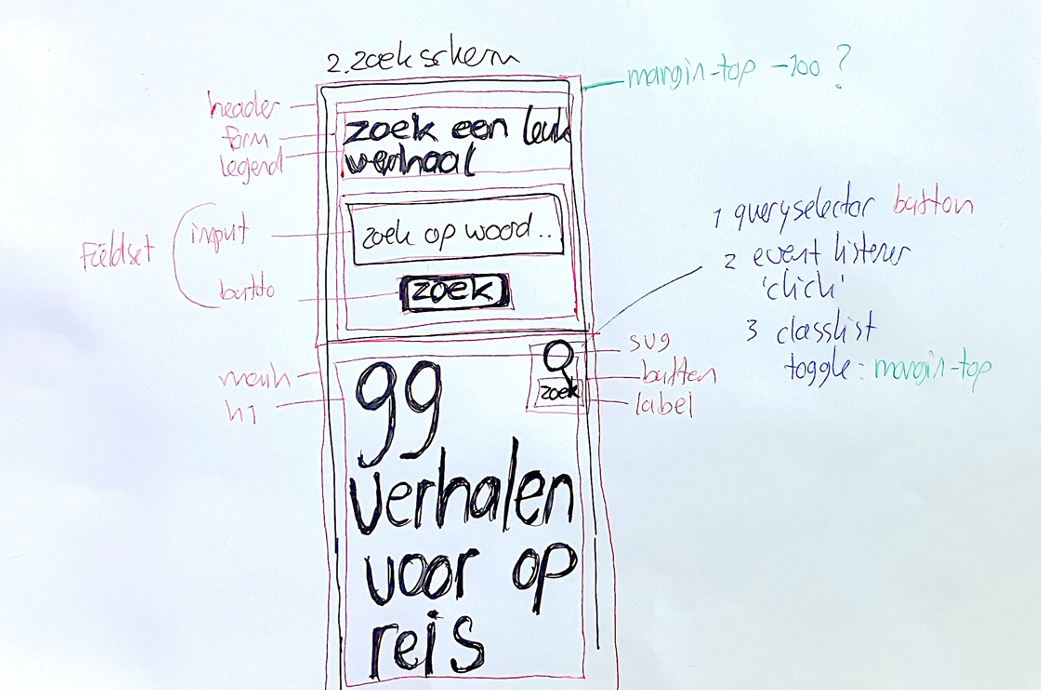 2. zoekscherm
margin-top -100 ?
header
form
legend
zoek een leuk
verhaal
Fieldset
input
zoek op woord..
butto
zoek
1 queryselector button
2 event listener
'click'
3 classlist
toggle: margin-top
svg
button
label
zoek
main
h1
99
verhalen
voor op
reis